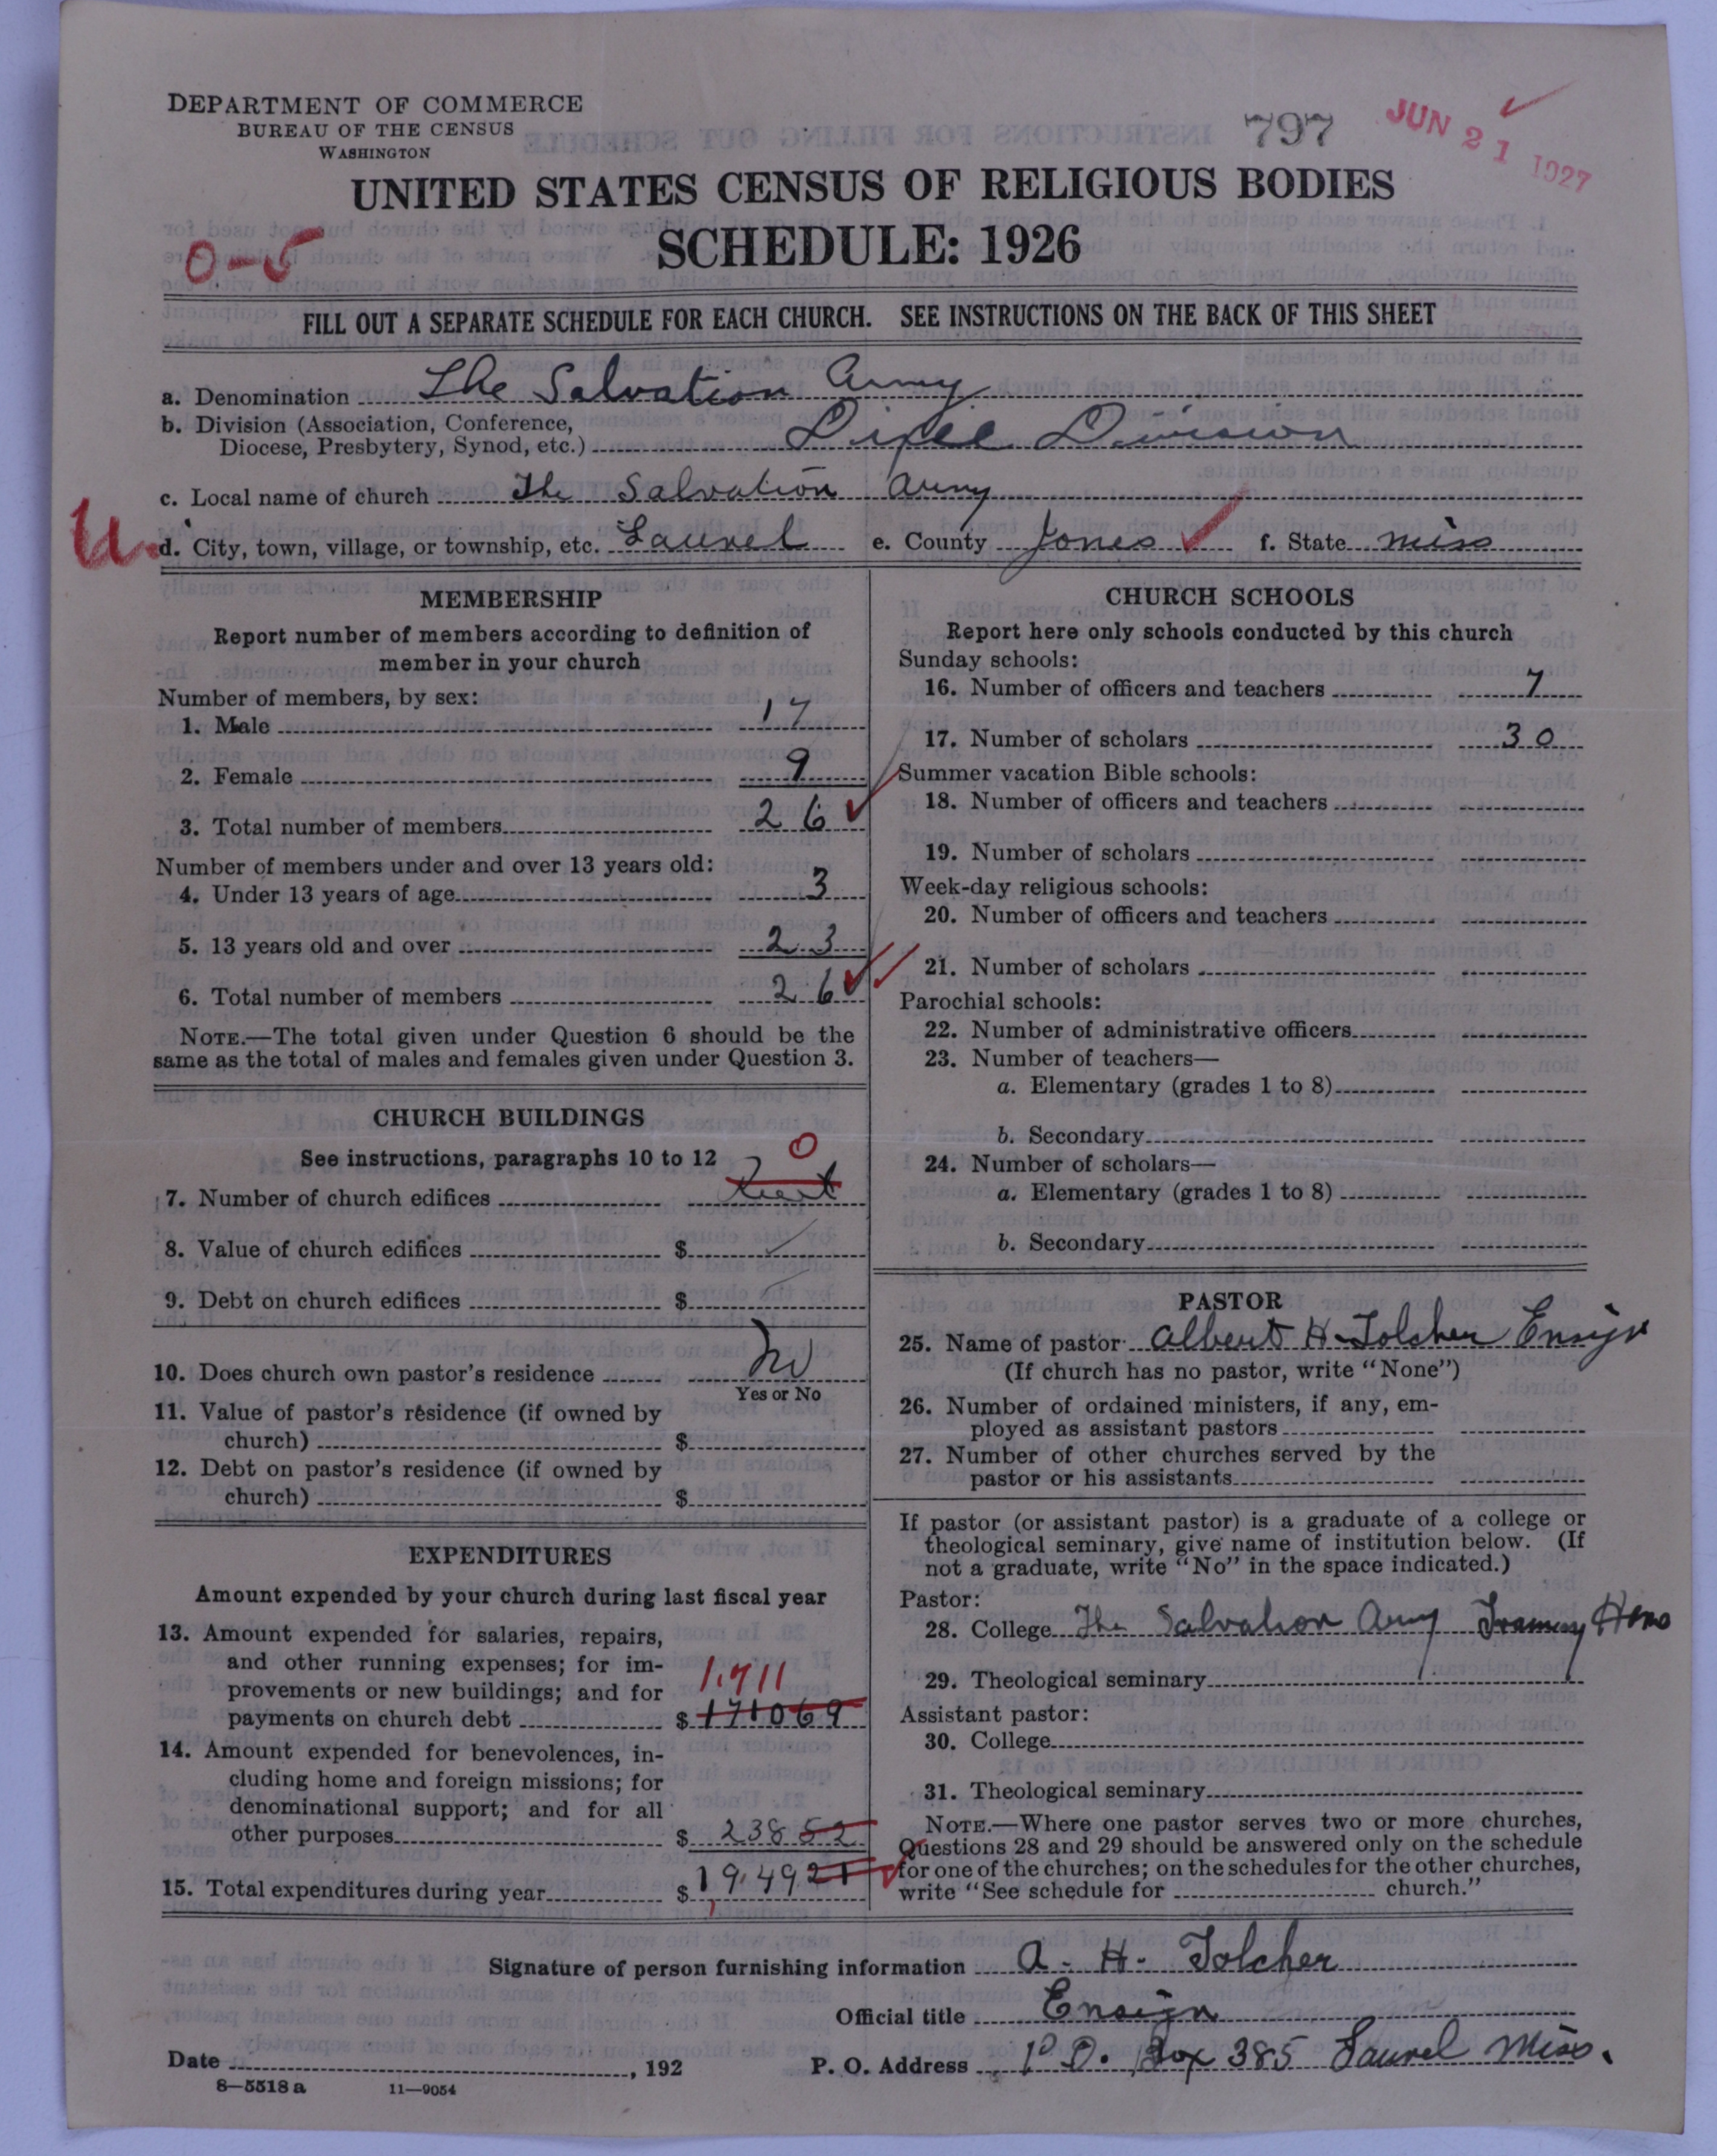 DEPARTMENT OF COMMERCE
BUREAU OF THE CENSUS
WASHINGTON
797
JUN 21 1927
UNITED STATES CENSUS OF RELIGIOUS BODIES
SCHEDULE: 1926
0-5
FILL OUT A SEPARATE SCHEDULE FOR EACH CHURCH. SEE INSTRUCTIONS ON THE BACK OF THIS SHEET
a. Denomination The Salvation Army
b. Division (Association, Conference,
Diocese, Presbytery, Synod, etc.) Division
c. Local name of church The Salvation Army
U. d. City, town, village, or township, etc. Laurel e. County Jones f. State Miss
MEMBERSHIP
Report number of members according to definition of
member in your church
Number of members, by sex:
1. Male 17
2. Female 9
3. Total number of members 26
Number of members under and over 13 years old:
4. Under 13 years of age 3
5. 13 years old and over 23
6. Total number of members 26
NOTE.—The total given under Question 6 should be the
same as the total of males and females given under Question 3.
CHURCH BUILDINGS
See instructions, paragraphs 10 to 12
0
7. Number of church edifices Rent
8. Value of church edifices $
9. Debt on church edifices $
10. Does church own pastor's residence No
Yes or No
11. Value of pastor's residence (if owned by
church) $
12. Debt on pastor's residence (if owned by
church) $
EXPENDITURES
Amount expended by your church during last fiscal year
13. Amount expended for salaries, repairs,
and other running expenses; for im-
provements or new buildings; and for 1,711
payments on church debt $ 171069
14. Amount expended for benevolences, in-
cluding home and foreign missions; for
denominational support; and for all
other purposes $ 238 52
15. Total expenditures during year $ 1949 21
CHURCH SCHOOLS
Report here only schools conducted by this church
Sunday schools:
16. Number of officers and teachers 7
17. Number of scholars 30
Summer vacation Bible schools:
18. Number of officers and teachers
19. Number of scholars
Week-day religious schools:
20. Number of officers and teachers
21. Number of scholars
Parochial schools:
22. Number of administrative officers
23. Number of teachers—
a. Elementary (grades 1 to 8)
b. Secondary
24. Number of scholars—
a. Elementary (grades 1 to 8)
b. Secondary
PASTOR
25. Name of pastor Albert H. Tolcher Ensign
(If church has no pastor, write "None")
26. Number of ordained ministers, if any, em-
ployed as assistant pastors
27. Number of other churches served by the
pastor or his assistants
If pastor (or assistant pastor) is a graduate of a college or
theological seminary, give name of institution below. (If
not a graduate, write "No" in the space indicated.)
Pastor:
28. College The Salvation Army Training Home
29. Theological seminary
Assistant pastor:
30. College
31. Theological seminary
NOTE.—Where one pastor serves two or more churches,
Questions 28 and 29 should be answered only on the schedule
for one of the churches; on the schedules for the other churches,
write "See schedule for church."
Signature of person furnishing information A. H. Tolcher
Official title Ensign
Date , 192 P. O. Address P.O. Box 385 Laurel Miss.
8—5518 a 11—9054